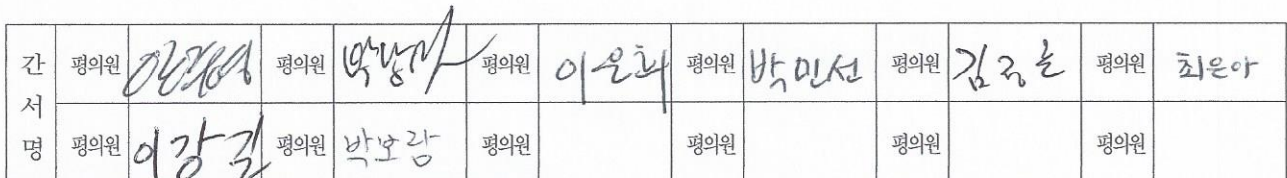 간 평의원 평의원 평의원 이은희 평의원 박민선 평의원 평의원 최은아
서
명 평의원 이강길 평의원 박보람 평의원 평의원 평의원 평의원